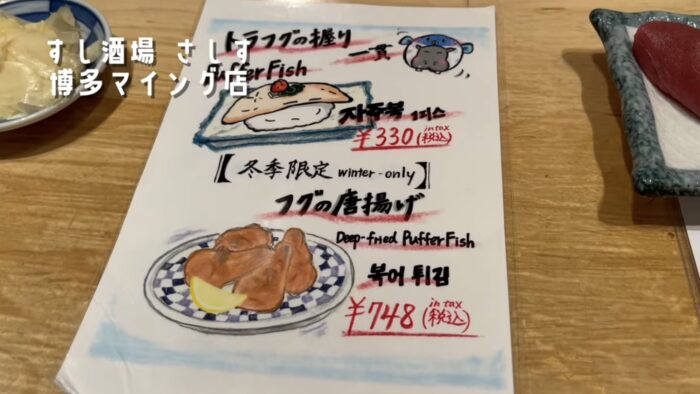 すし酒場 さしす
博多マイング店
トラフグの握り
一貫
PufferFish
자주복 1피스
¥330 in tax (税込)
【冬季限定 winter-only】
フグの唐揚げ
Deep-fried PufferFish
복어 튀김
¥748 in tax (税込)